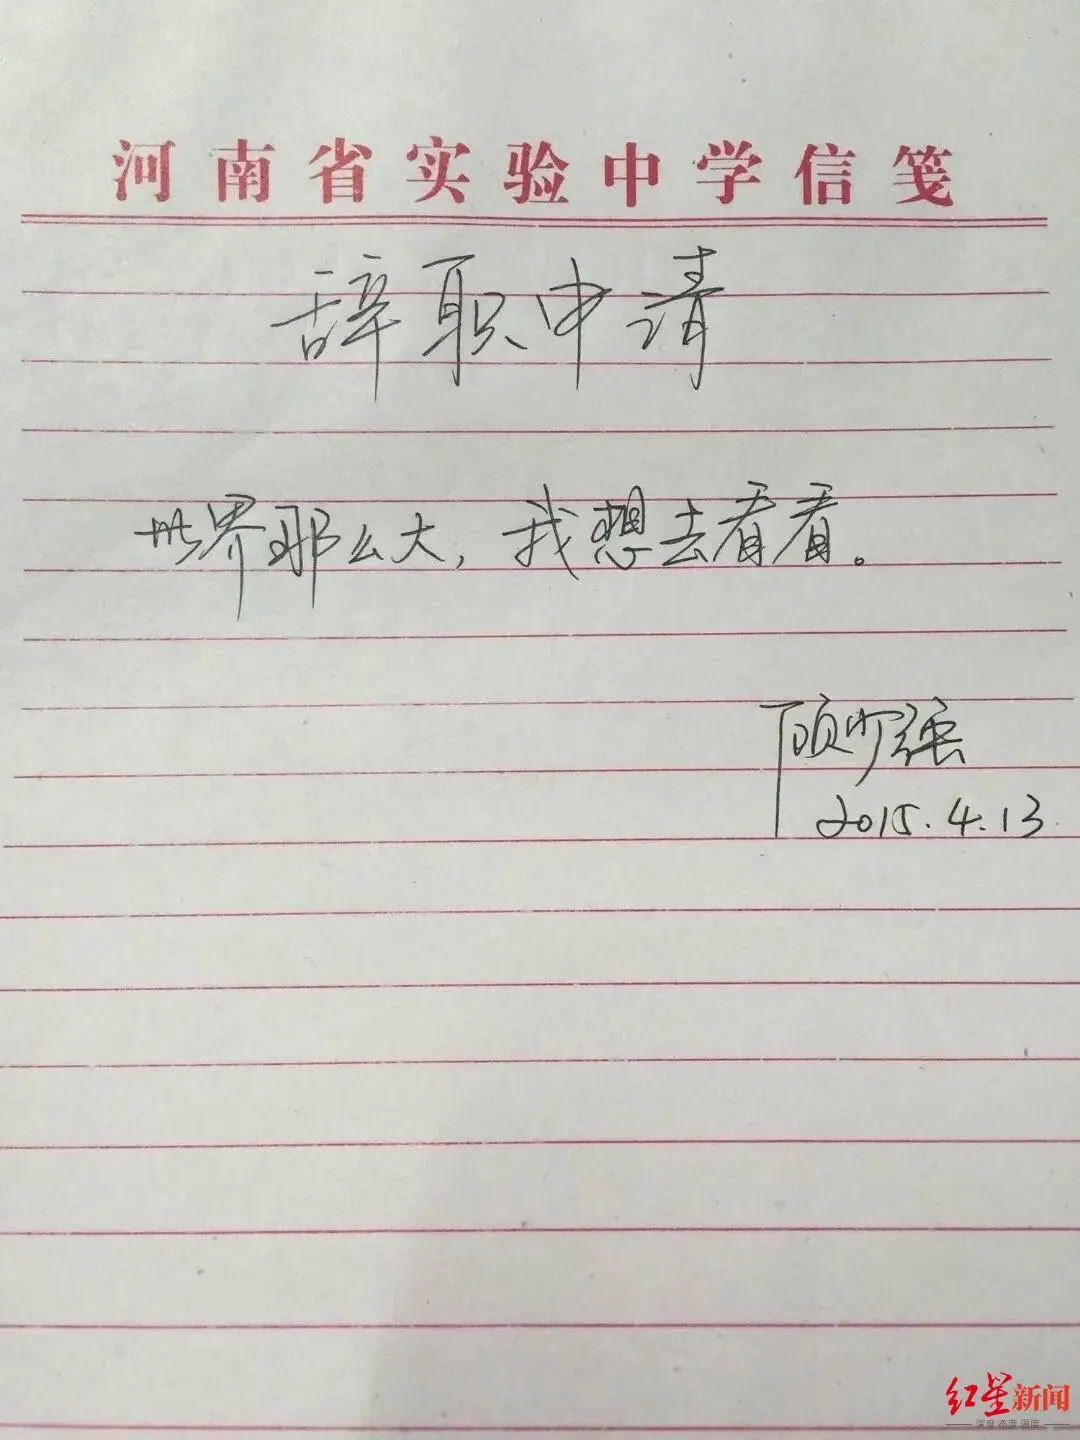 河南省实验中学信笺
辞职申请
世界那么大，我想去看看。
顾少强
2015.4.13
红星新闻
深度 态度 温度